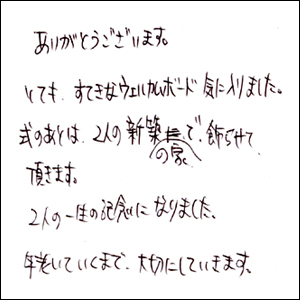 ありがとうございます。
とても、すてきなウェルカムボード気に入りました。
式のあとは、2人の新築の家で、飾らせて
頂きます。
2人の一生の記念になりました。
年老いていくまで、大切にしていきます。